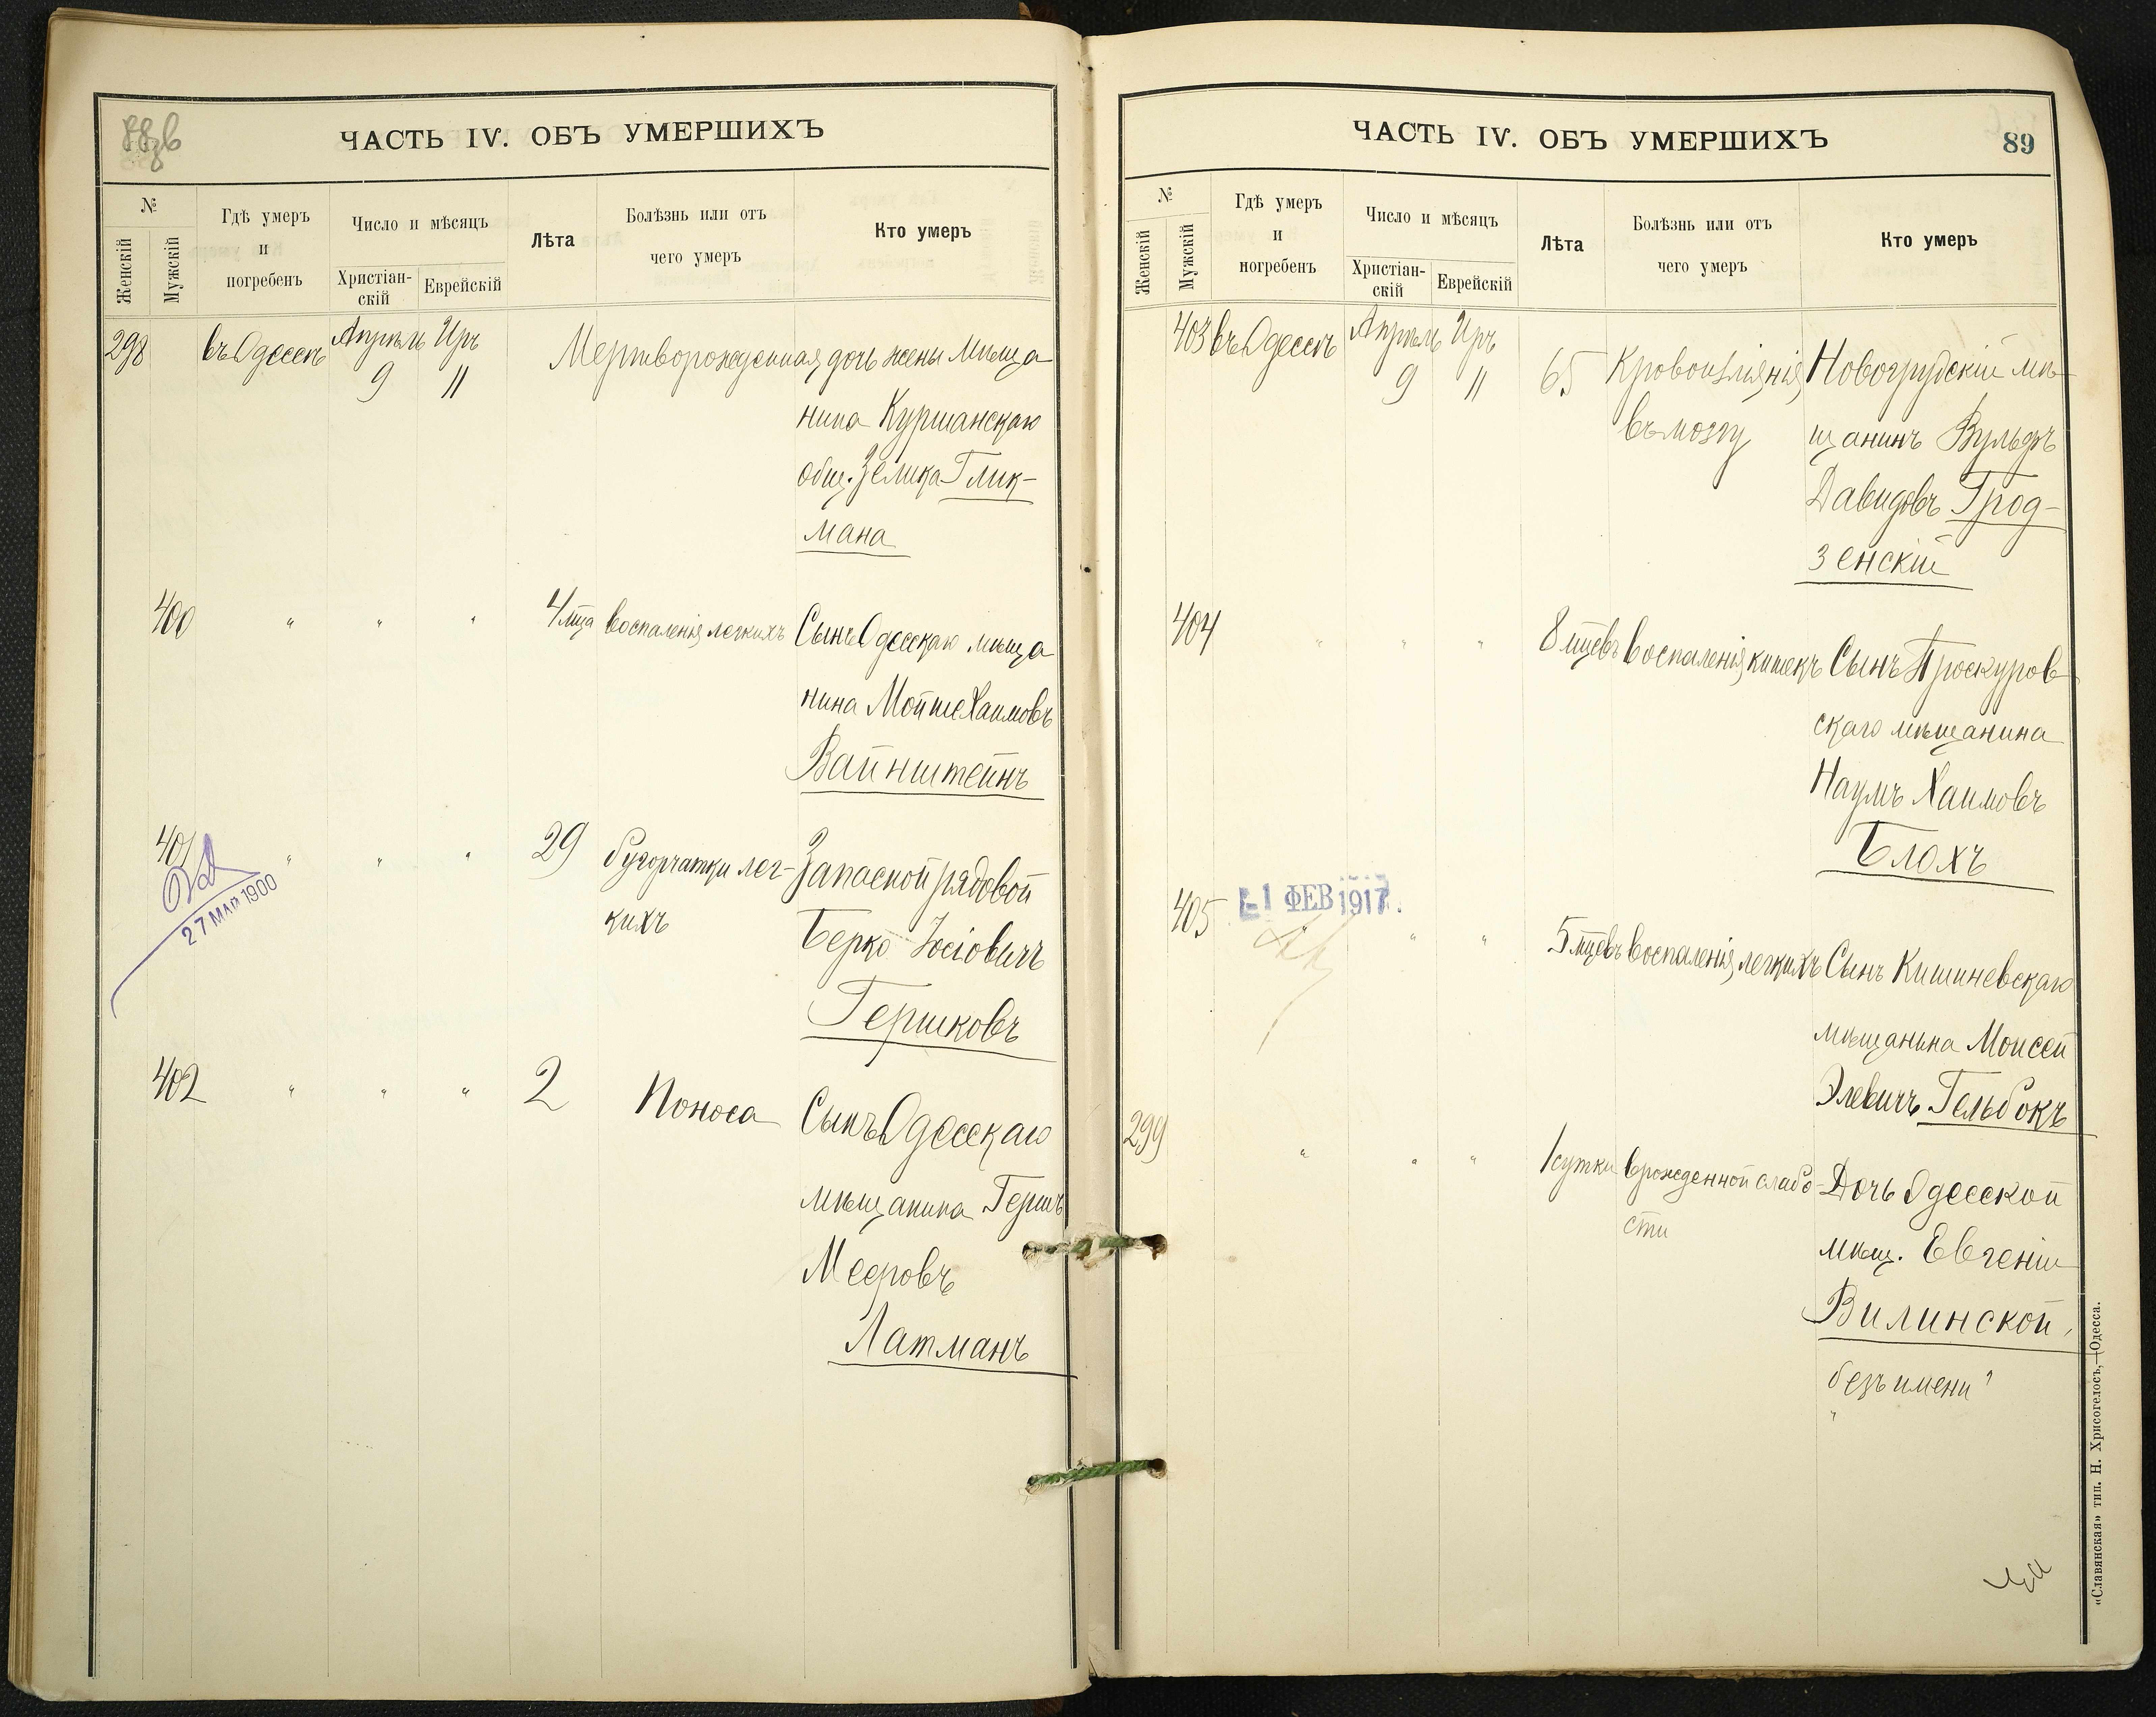 ЧАСТЬ IV. ОБЪ УМЕРШИХЪ
№
Женскій
Мужскій
Гдѣ умеръ
и
погребенъ
Число и мѣсяцъ
Христіан-
скій
Еврейскій
Лѣта
Болѣзнь или отъ
чего умеръ
Кто умеръ
298 въ Одессѣ Апрѣль Иръ Мертворожденная дочь жены Мѣща
9 11
нина
общ. Зелика Глик-
мана
400 " " " 4 мца воспаленія легкихъ Сынъ Одесскаго мѣща
нина Мойше Хаимовъ
Вайнштейнъ
401 " " " 29 бугорчатки лег- Запасной рядовой
кихъ Берко Іосіовичъ
Гершковъ
27 МАЙ 1900
402 " " " 2 Поноса Сынъ Одесскаго
мѣщанина Гершъ
Мееровъ
Латманъ
ЧАСТЬ IV. ОБЪ УМЕРШИХЪ
89
№
Женскій
Мужскій
Гдѣ умеръ
и
погребенъ
Число и мѣсяцъ
Христіан-
скій
Еврейскій
Лѣта
Болѣзнь или отъ
чего умеръ
Кто умеръ
403 въ Одессѣ Апрѣль Иръ
9 11 65 Кровоизліянія Новогрудскій мѣ-
въ мозгу щанинъ Вульфъ
Давидовъ Грод-
зенскій
404 " " " 8 мцевъ воспаленія кишекъ Сынъ Проскуров-
скаго мѣщанина
Наумъ Хаимовъ
Блохъ
-1 ФЕВ 1917
405 " " " 5 мцевъ воспаленія легкихъ Сынъ Кишиневскаго
мѣщанина Моисей
Элевичъ Гельбокъ
299 " " " 1 сутки врожденной слабо- Дочь Одесской
сти мѣщ. Евгеніи
Вилинской,
безъ имени
"
«Славянская» тип. Н. Хрисогелосъ,—Одесса.